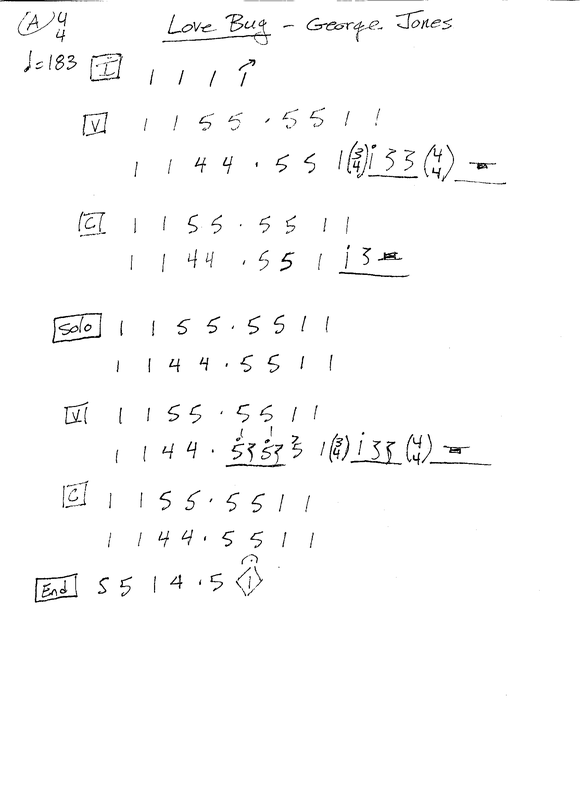 (A) 4/4 Love Bug - George Jones
♩=183 I 1 1 1 1
V 1 1 5 5 . 5 5 1 1
1 1 4 4 . 5 5 1 (3/4) 1 3 3 (4/4)
C 1 1 5 5 . 5 5 1 1
1 1 4 4 . 5 5 1 1 3
Solo 1 1 5 5 . 5 5 1 1
1 1 4 4 . 5 5 1 1
V 1 1 5 5 . 5 5 1 1
1 1 4 4 . 1 (3/4) 1 (4/4)
C 1 1 5 5 . 5 5 1 1
1 1 4 4 . 5 5 1 1
End 5 5 1 4 . 5 1